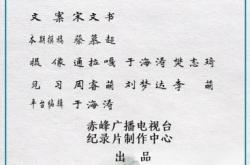 文案宋文书
本期撰稿 蔡慕超
摄像通拉嘎 于海涛 樊志琦
见习周睿萌 刘梦达 李萌
平台编辑 于海涛
赤峰广播电视台
纪录片制作中心
出品